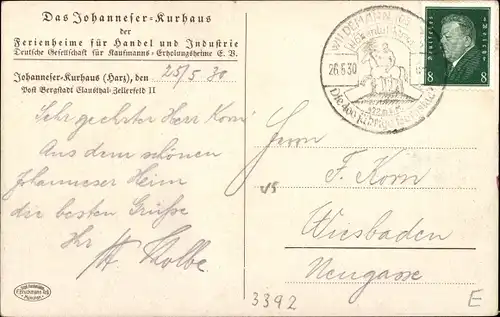 Das Johanneser-Kurhaus
der
Ferienheime für Handel und Industrie
Deutsche Gesellschaft für Kaufmanns-Erholungsheime E. V.
Johanneser-Kurhaus (Harz), den 25/5 30
Post Bergstadt Clausthal-Zellerfeld II
Sehr geehrter Herr Korn!
Aus dem schönen
Johanneser Heim
die besten Grüße
Ihr
WILDEMANN
26.5.30
Deutsches Reich
8 8
Herrn
F. Korn
Wiesbaden
Neugasse
3392
E